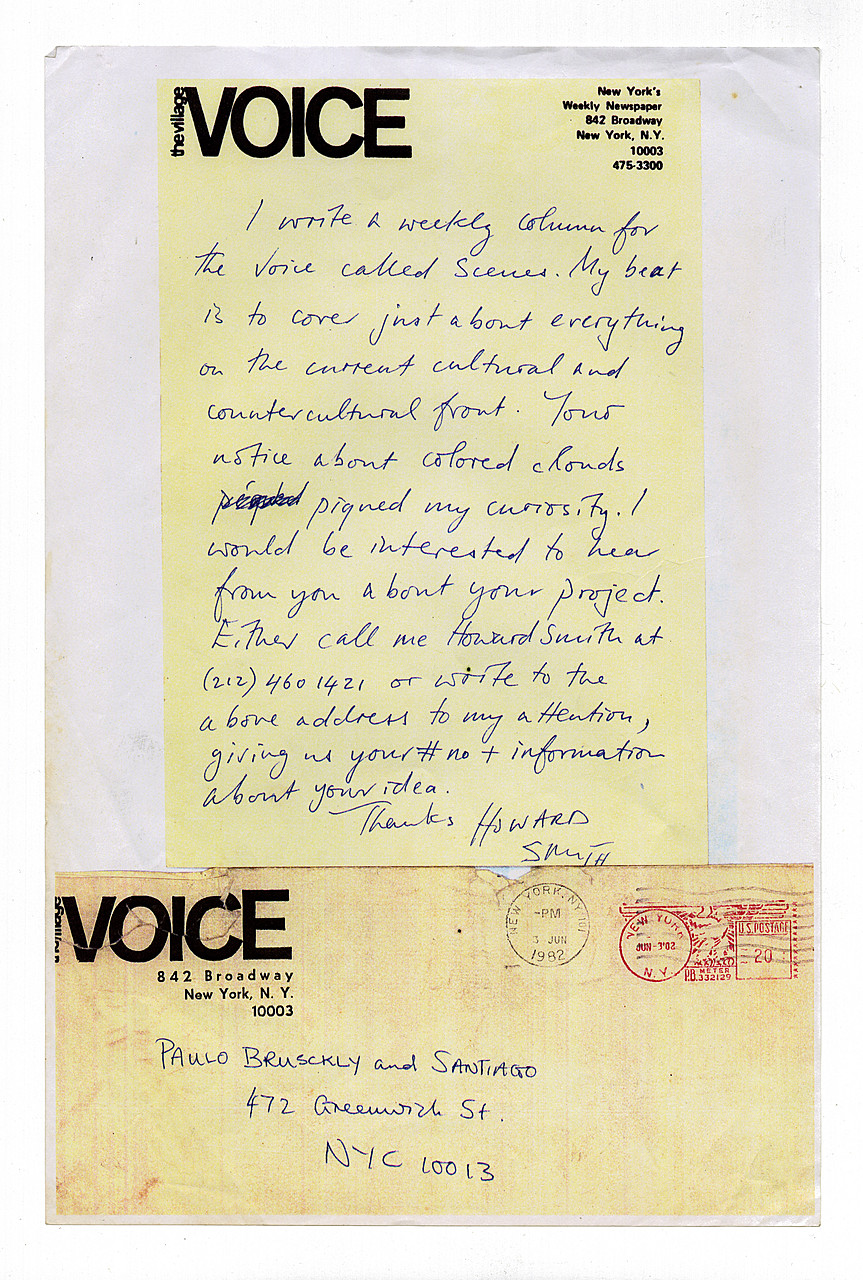 the village VOICE
New York's
Weekly Newspaper
842 Broadway
New York, N.Y.
10003
475-3300
I write a weekly column for
the Voice called Scenes. My beat
is to cover just about everything
on the current cultural and
countercultural front. Your
notice about colored clouds
piqued my curiosity. I
would be interested to hear
from you about your project.
Either call me Howard Smith at
(212) 460 1421 or write to the
above address to my attention,
giving us your # no + information
about your idea.
Thanks HOWARD
SMITH
VOICE
842 Broadway
New York, N. Y.
10003
NEW YORK, NY
-PM
3 JUN
1982
NEW YORK
JUN-3'82
N.Y.
P.B. METER
332129
U.S. POSTAGE
20
PAULO BRUSCKLY and SANTIAGO
472 Greenwich St.
NYC 10013